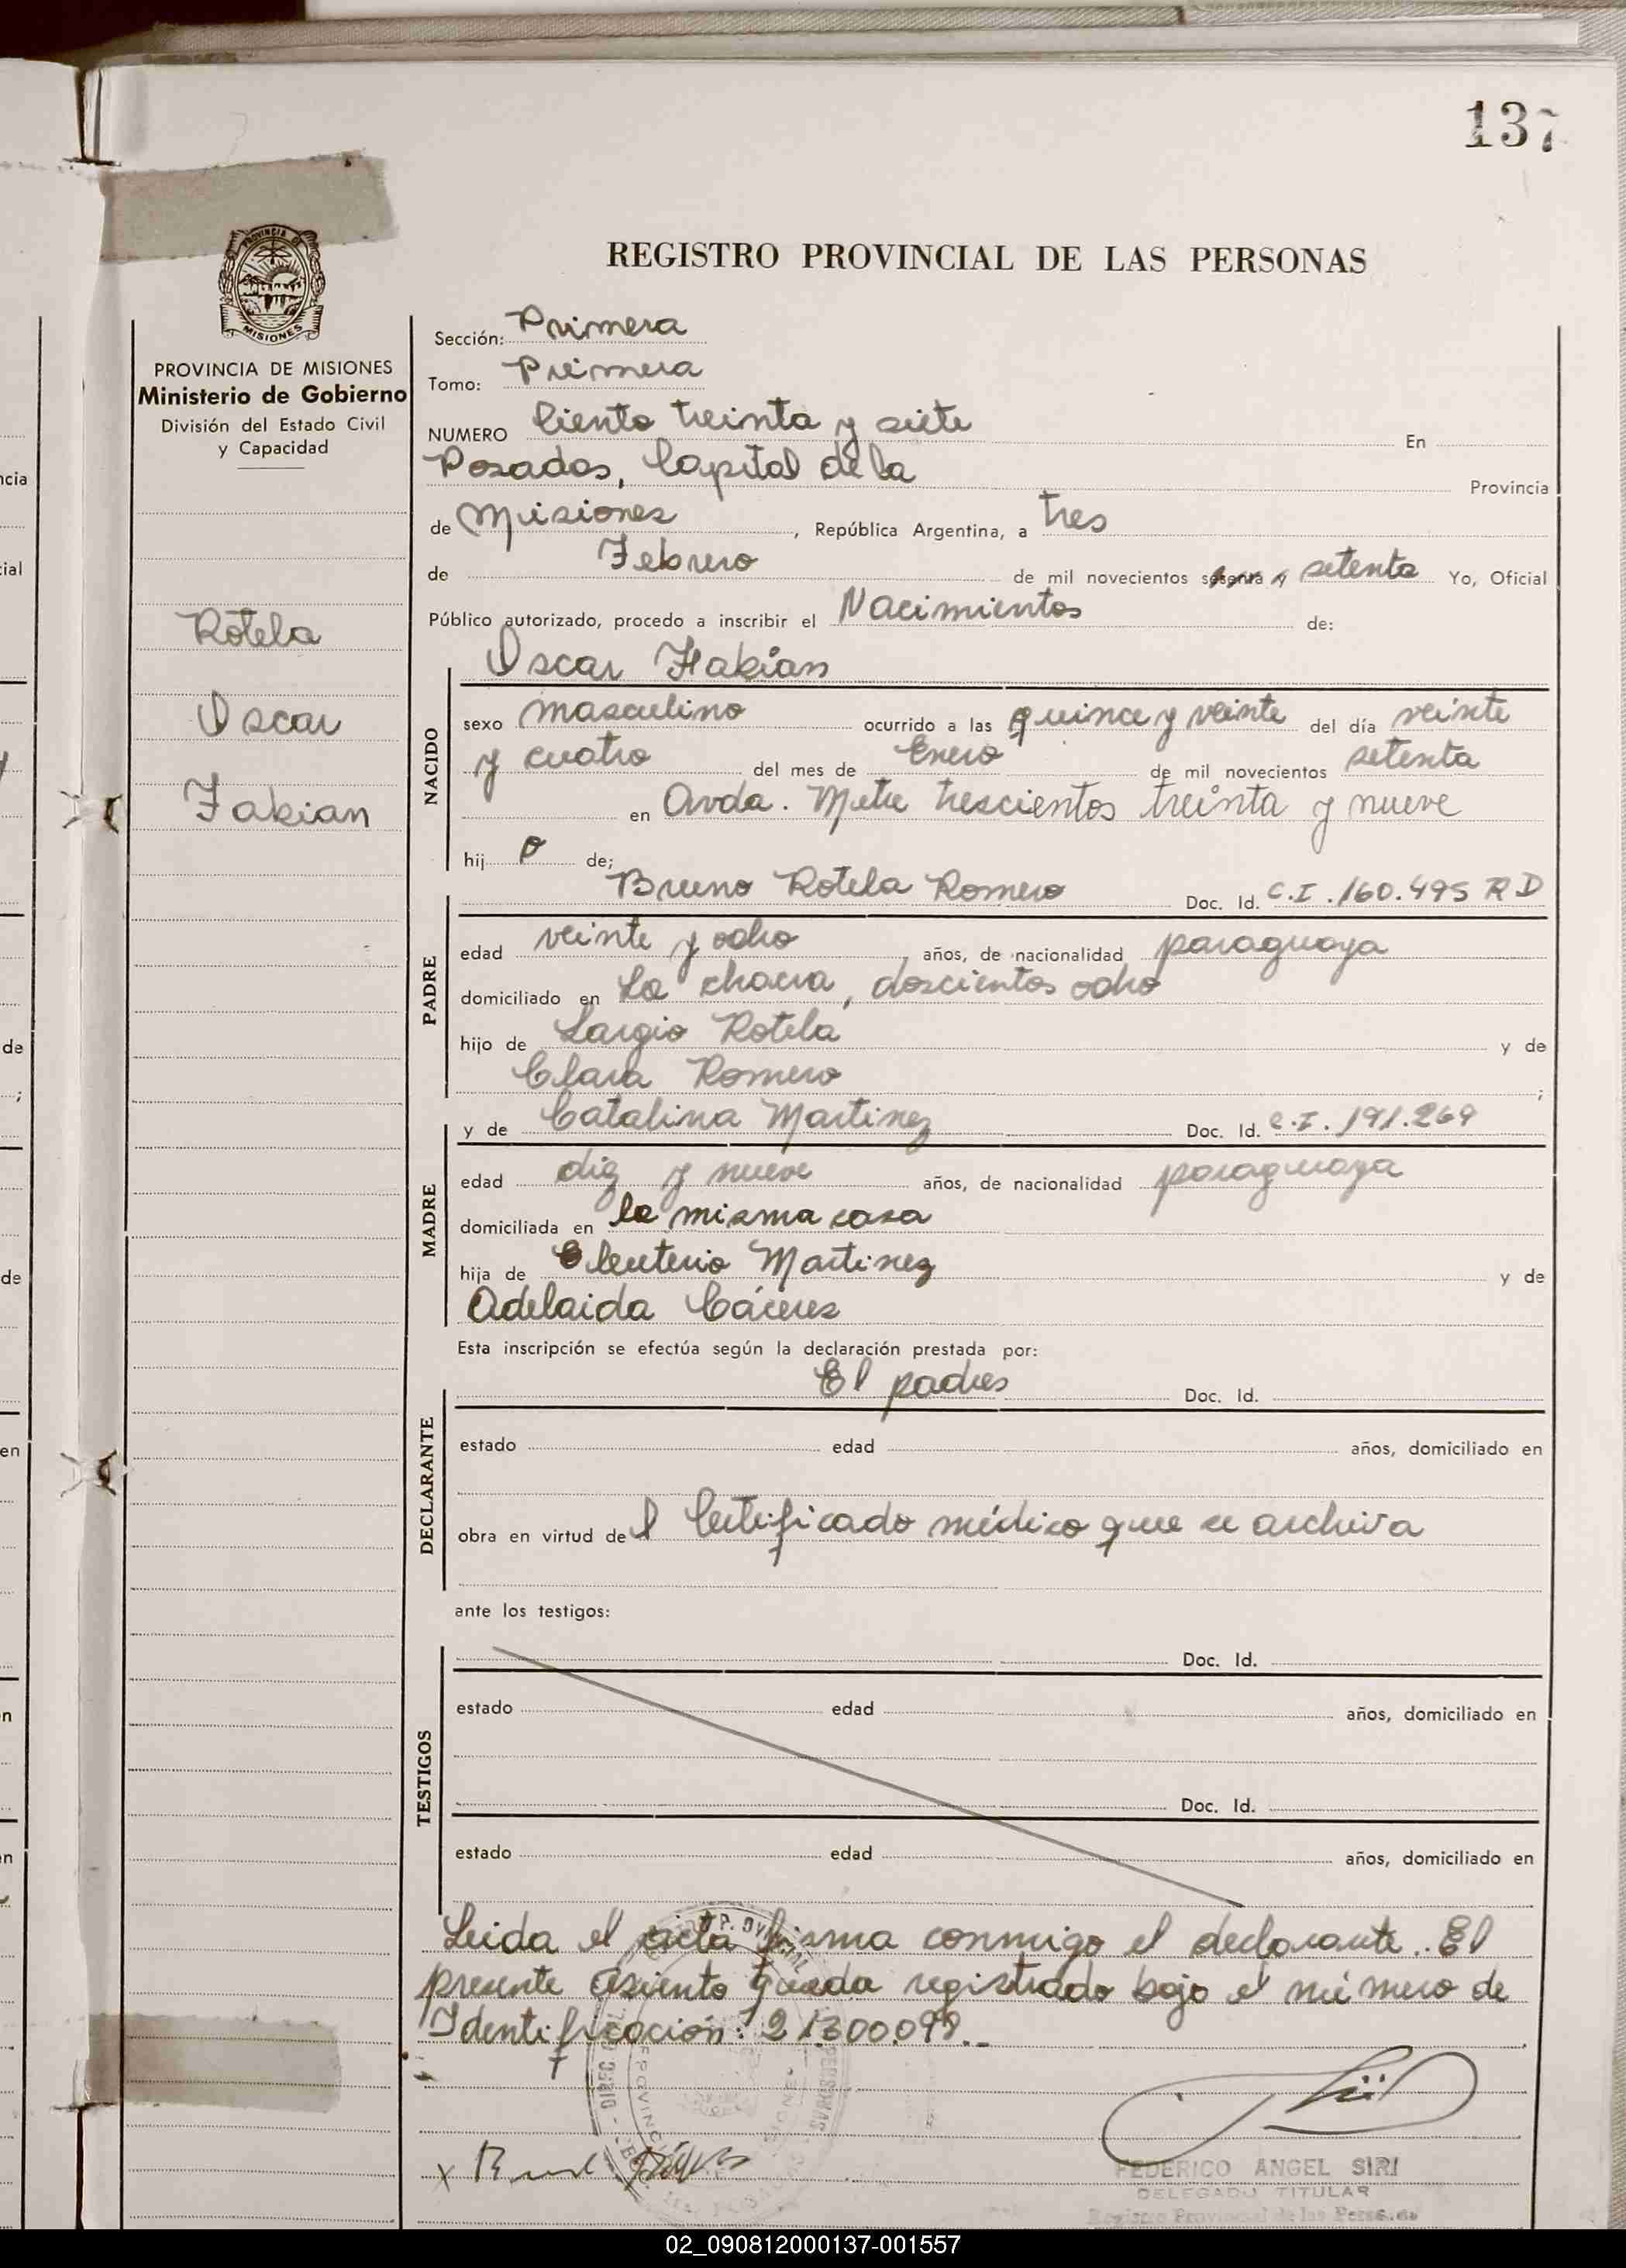 137
PROVINCIA DE
MISIONES
PROVINCIA DE MISIONES
Ministerio de Gobierno
División del Estado Civil
y Capacidad
Rotela
Oscar
Fabian
REGISTRO PROVINCIAL DE LAS PERSONAS
Sección: Primera
Tomo: Primera
NUMERO Ciento treinta y siete En
Posadas, Capital de la Provincia
de Misiones, República Argentina, a tres
de Febrero de mil novecientos sesenta y setenta Yo, Oficial
Público autorizado, procedo a inscribir el Nacimientos de:
Oscar Fabian
NACIDO
sexo masculino ocurrido a las quince y veinte del día veinte
y cuatro del mes de Enero de mil novecientos setenta
en Avda. Mitre trescientos treinta y nueve
hijo de;
Bruno Rotela Romero Doc. Id. C.I. 160.495 RD
PADRE
edad veinte y ocho años, de nacionalidad paraguaya
domiciliado en La chacra, doscientos ocho
hijo de Sargio Rotela y de
Clara Romero ;
y de Catalina Martinez Doc. Id. C.I. 191.269
MADRE
edad diz y nueve años, de nacionalidad paraguaya
domiciliada en la misma casa
hija de Eleuterio Martinez y de
Adelaida Cáceres
Esta inscripción se efectúa según la declaración prestada por:
El padres Doc. Id.
DECLARANTE
estado edad años, domiciliado en
obra en virtud del Certificado médico que se archiva
ante los testigos:
Doc. Id.
TESTIGOS
estado edad años, domiciliado en
Doc. Id.
estado edad años, domiciliado en
Leida el acta firma conmigo el declarante. El
presente asiento queda registrado bajo el número de
Identificación: 21.300.098.-
FEDERICO ANGEL SIRI
DELEGADO TITULAR
Registro Provincial de las Personas
02_090812000137-001557